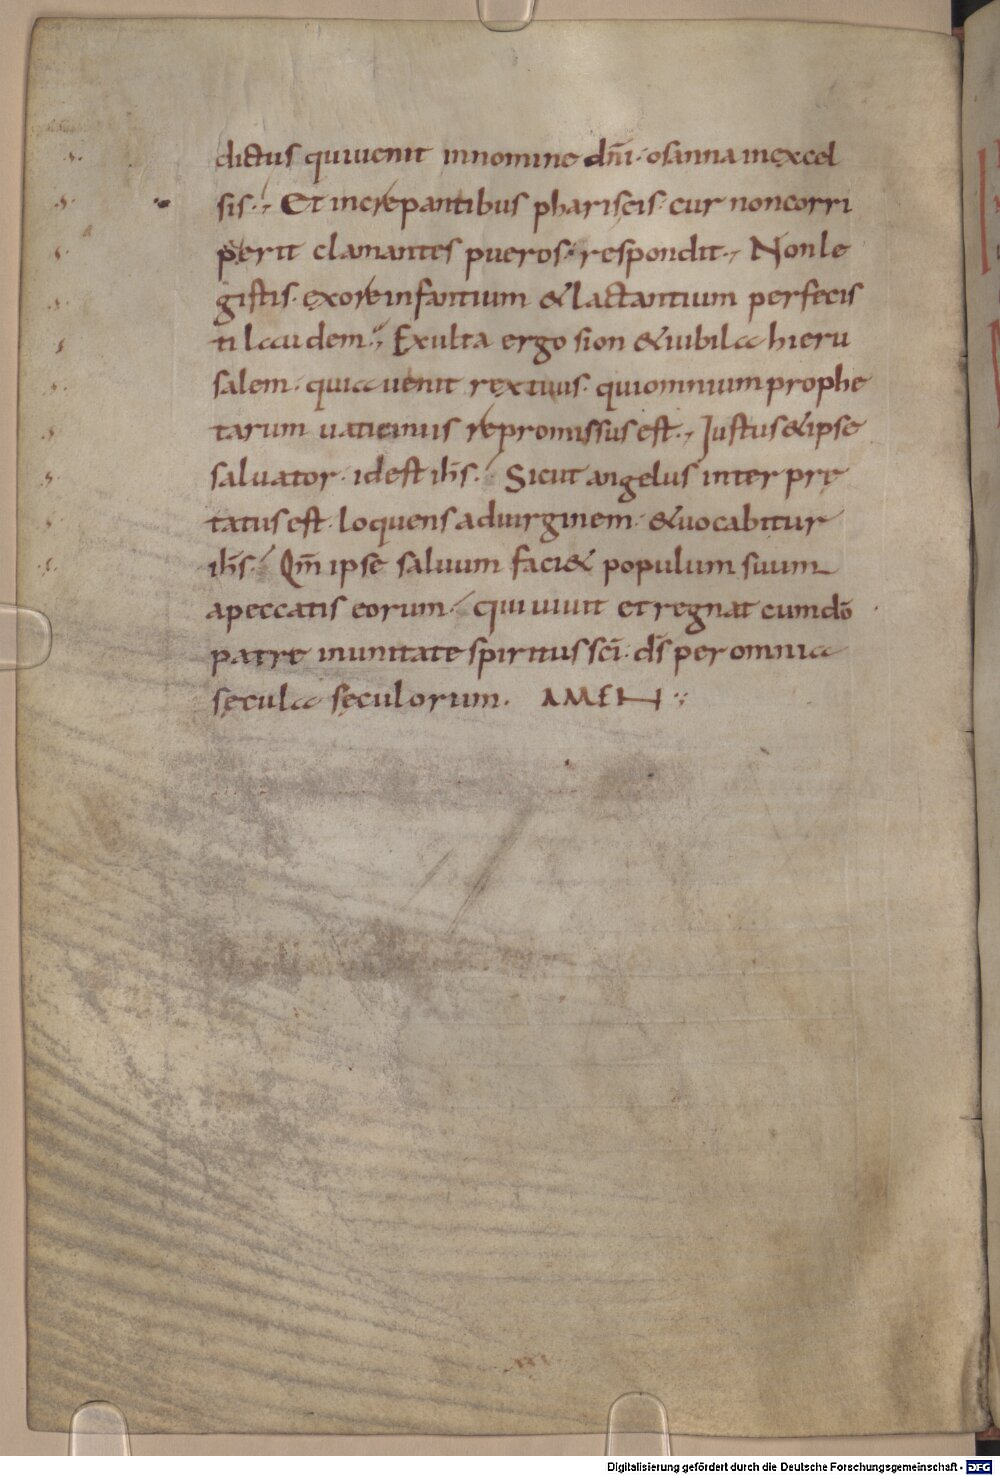 dictus qui uenit innomine dñi · osanna inexcel
sis ·, Et increpantibus phariseis · cur noncorri
perit clamantes pueros · respondit ·, Nonle
gistis · exore infantium & lactantium perfecis
ti laudem ·, Exulta ergo sion & iubila hieru
salem · quia uenit rex tuus · quiomnium prophe
tarum uaticiniis repromissus est ·, Iustus & ipse
saluator · idest ih̅s · Sicut angelus inter prę
tatus est · loquens aduirginem · & uocabitur
ih̅s · Qm̅ ipse saluum faci& populum suum
apeccatis eorum · qui uiuit et regnat cum dō
patre inunitate spiritus sc̅i · d̅s per omnia
sęcula sęculorum · AMEN
Digitalisierung gefördert durch die Deutsche Forschungsgemeinschaft - DFG